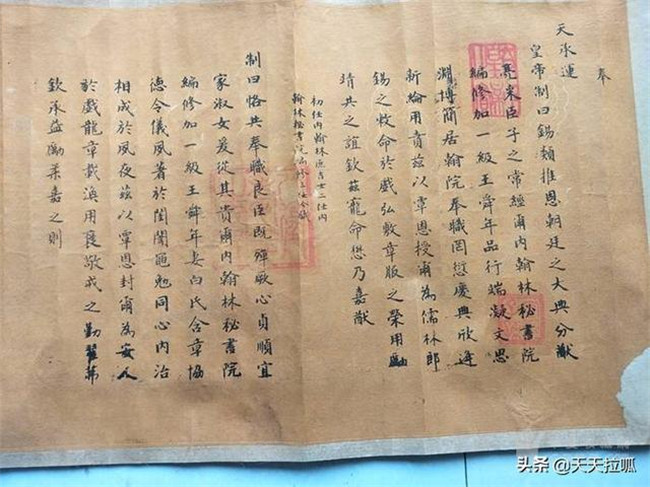 奉
天承運
皇帝制曰錫類推恩朝廷之大典分猷
亮采臣子之常經爾內翰林秘書院
編修加一級王舜年品行端凝文思
淵博簡居翰院奉職罔愆慶典欣逢
新綸用賁茲以覃恩授爾為儒林郎
錫之敕命於戲弘敷章服之榮用勵
靖共之誼欽茲寵命懋乃嘉猷
初任內翰林庶吉士二任內
翰林秘書院編修三任今職
制曰恪共奉職良臣既殫厥心貞順宜
家淑女爰從其貴爾內翰林秘書院
編修加一級王舜年妻白氏含章協
德令儀夙著於閨闈黽勉同心內治
相成於夙夜茲以覃恩封爾為安人
於戲龍章載渙用褒敬戒之勤翟茀
欽承益勵柔嘉之則
头条 @天天拉呱